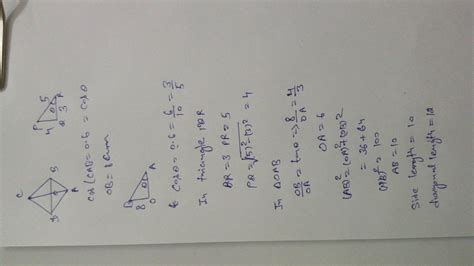 C
B
A
P
4 5
3 R
cos(CAB = 0.6 = cosθ
OB =
B
8
O A
cosθ = 0.6 = 6/10 = 3/5
In triangle PQR
QR = 3 PR = 5
PQ = √(5)²-(3)² = 4
In ΔOAB
OB/OA = tanθ → 8/OA = 4/3
OA = 6
(AB)² = (OA)²+(OB)²
= 36 + 64
(AB)² = 100
AB = 10
Side length = 10
diagonal length =